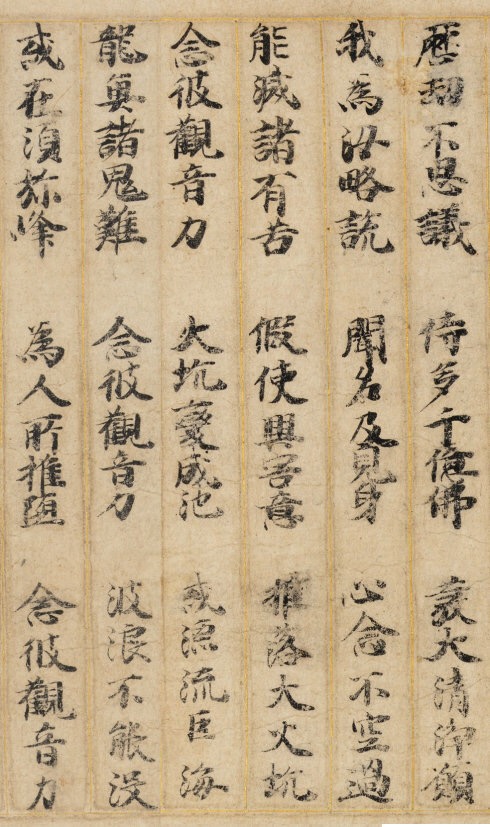 歷劫不思議 侍多千億佛 發大清淨願
我為汝略説 聞名及見身 心念不空過
能滅諸有苦 假使興害意 推落大火坑
念彼觀音力 火坑變成池 或漂流巨海
龍魚諸鬼難 念彼觀音力 波浪不能没
或在須弥峰 為人所推墮 念彼觀音力